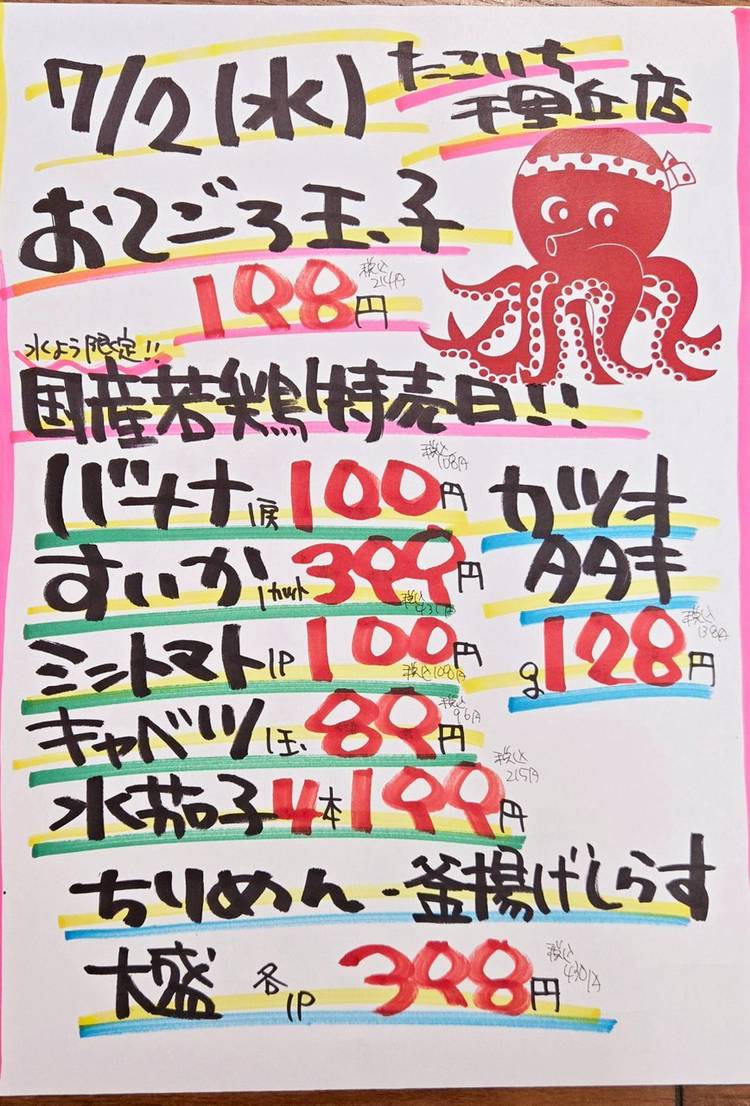 7/2(水)
たこいち
千里丘店
おてごろ玉子
198円
税込
214円
水よう限定!!
国産若鶏特売日!!
バナナ1房100円
税込
108円
すいか1カット399円
税込
431円
ミニトマト1P100円
税込108円
キャベツ1玉89円
税込
96円
水茄子4本199円
税込
215円
カツオ
タタキ
g128円
税込
138円
ちりめん・釜揚げしらす
大盛 各1P 398円
税込
430円